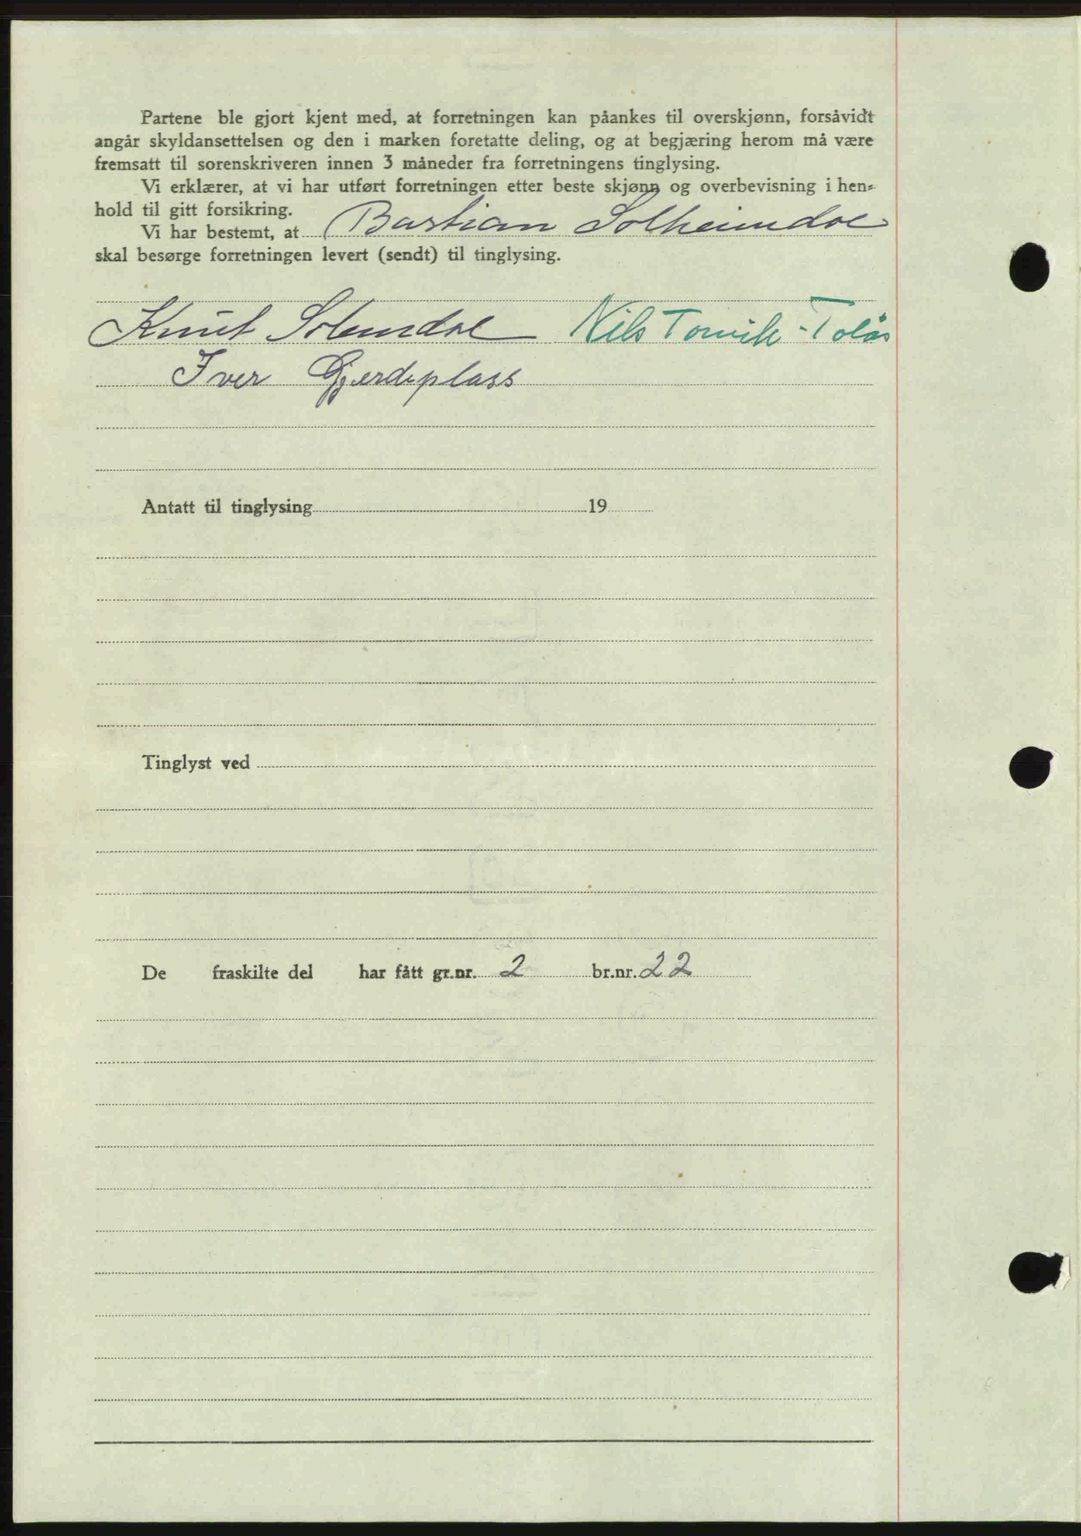 Partene ble gjort kjent med, at forretningen kan påankes til overskjønn, forsåvidt
angår skyldansettelsen og den i marken foretatte deling, og at begjæring herom må være
fremsatt til sorenskriveren innen 3 måneder fra forretningens tinglysing.
Vi erklærer, at vi har utført forretningen etter beste skjønn og overbevisning i hen-
hold til gitt forsikring.
Vi har bestemt, at Bastian Solheimdal
skal besørge forretningen levert (sendt) til tinglysing.
Knut Solemdal Nils Torvik-Tolås
Iver Gjerdeplass
Antatt til tinglysing 19
Tinglyst ved
De fraskilte del har fått gr.nr. 2 br.nr. 22